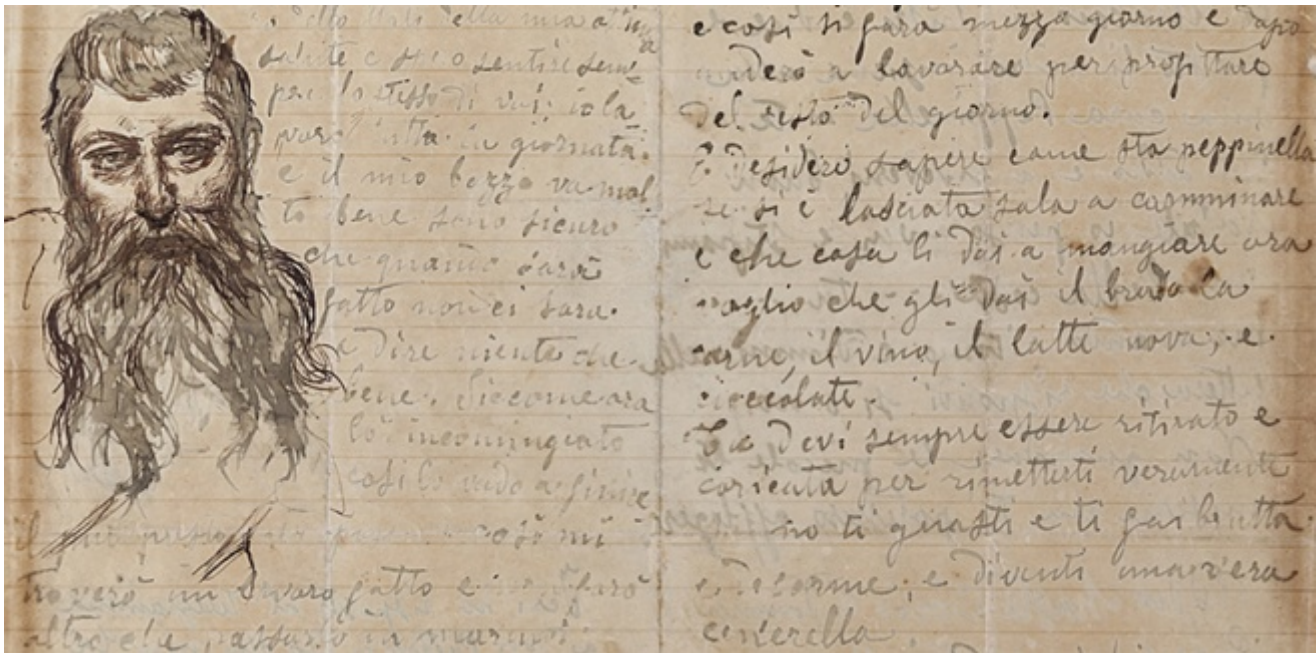 della mia ottima
salute e spero sentire sem
pre lo stesso di voi; io la
voro tutta la giornata.
e il mio bozzo va mol
to bene sono sicuro
che quanto sarà
fatto non ci sara.
a dire niente che.
bene. Siccome ora
lo incomingiato
cosi lo vado a finire
il cosi mi
troverò un lavoro fatto e
altro che passarlo in marmo;
e cosi si farà mezzo giorno e dopo
anderò a lavorare per profittare
del resto del giorno.
Desidero sapere come sta peppinella
se si è lasciata sola a camminare
e che cosa li dai a mangiare ora
voglio che gli dai il brodo la
carne, il vino, il latte uova, e.
cioccolate.
devi sempre essere ritirato e
coricata per rimetterti veramente
no ti guasti e ti fai brutta
e deforme, e diventi una vera
cenerella